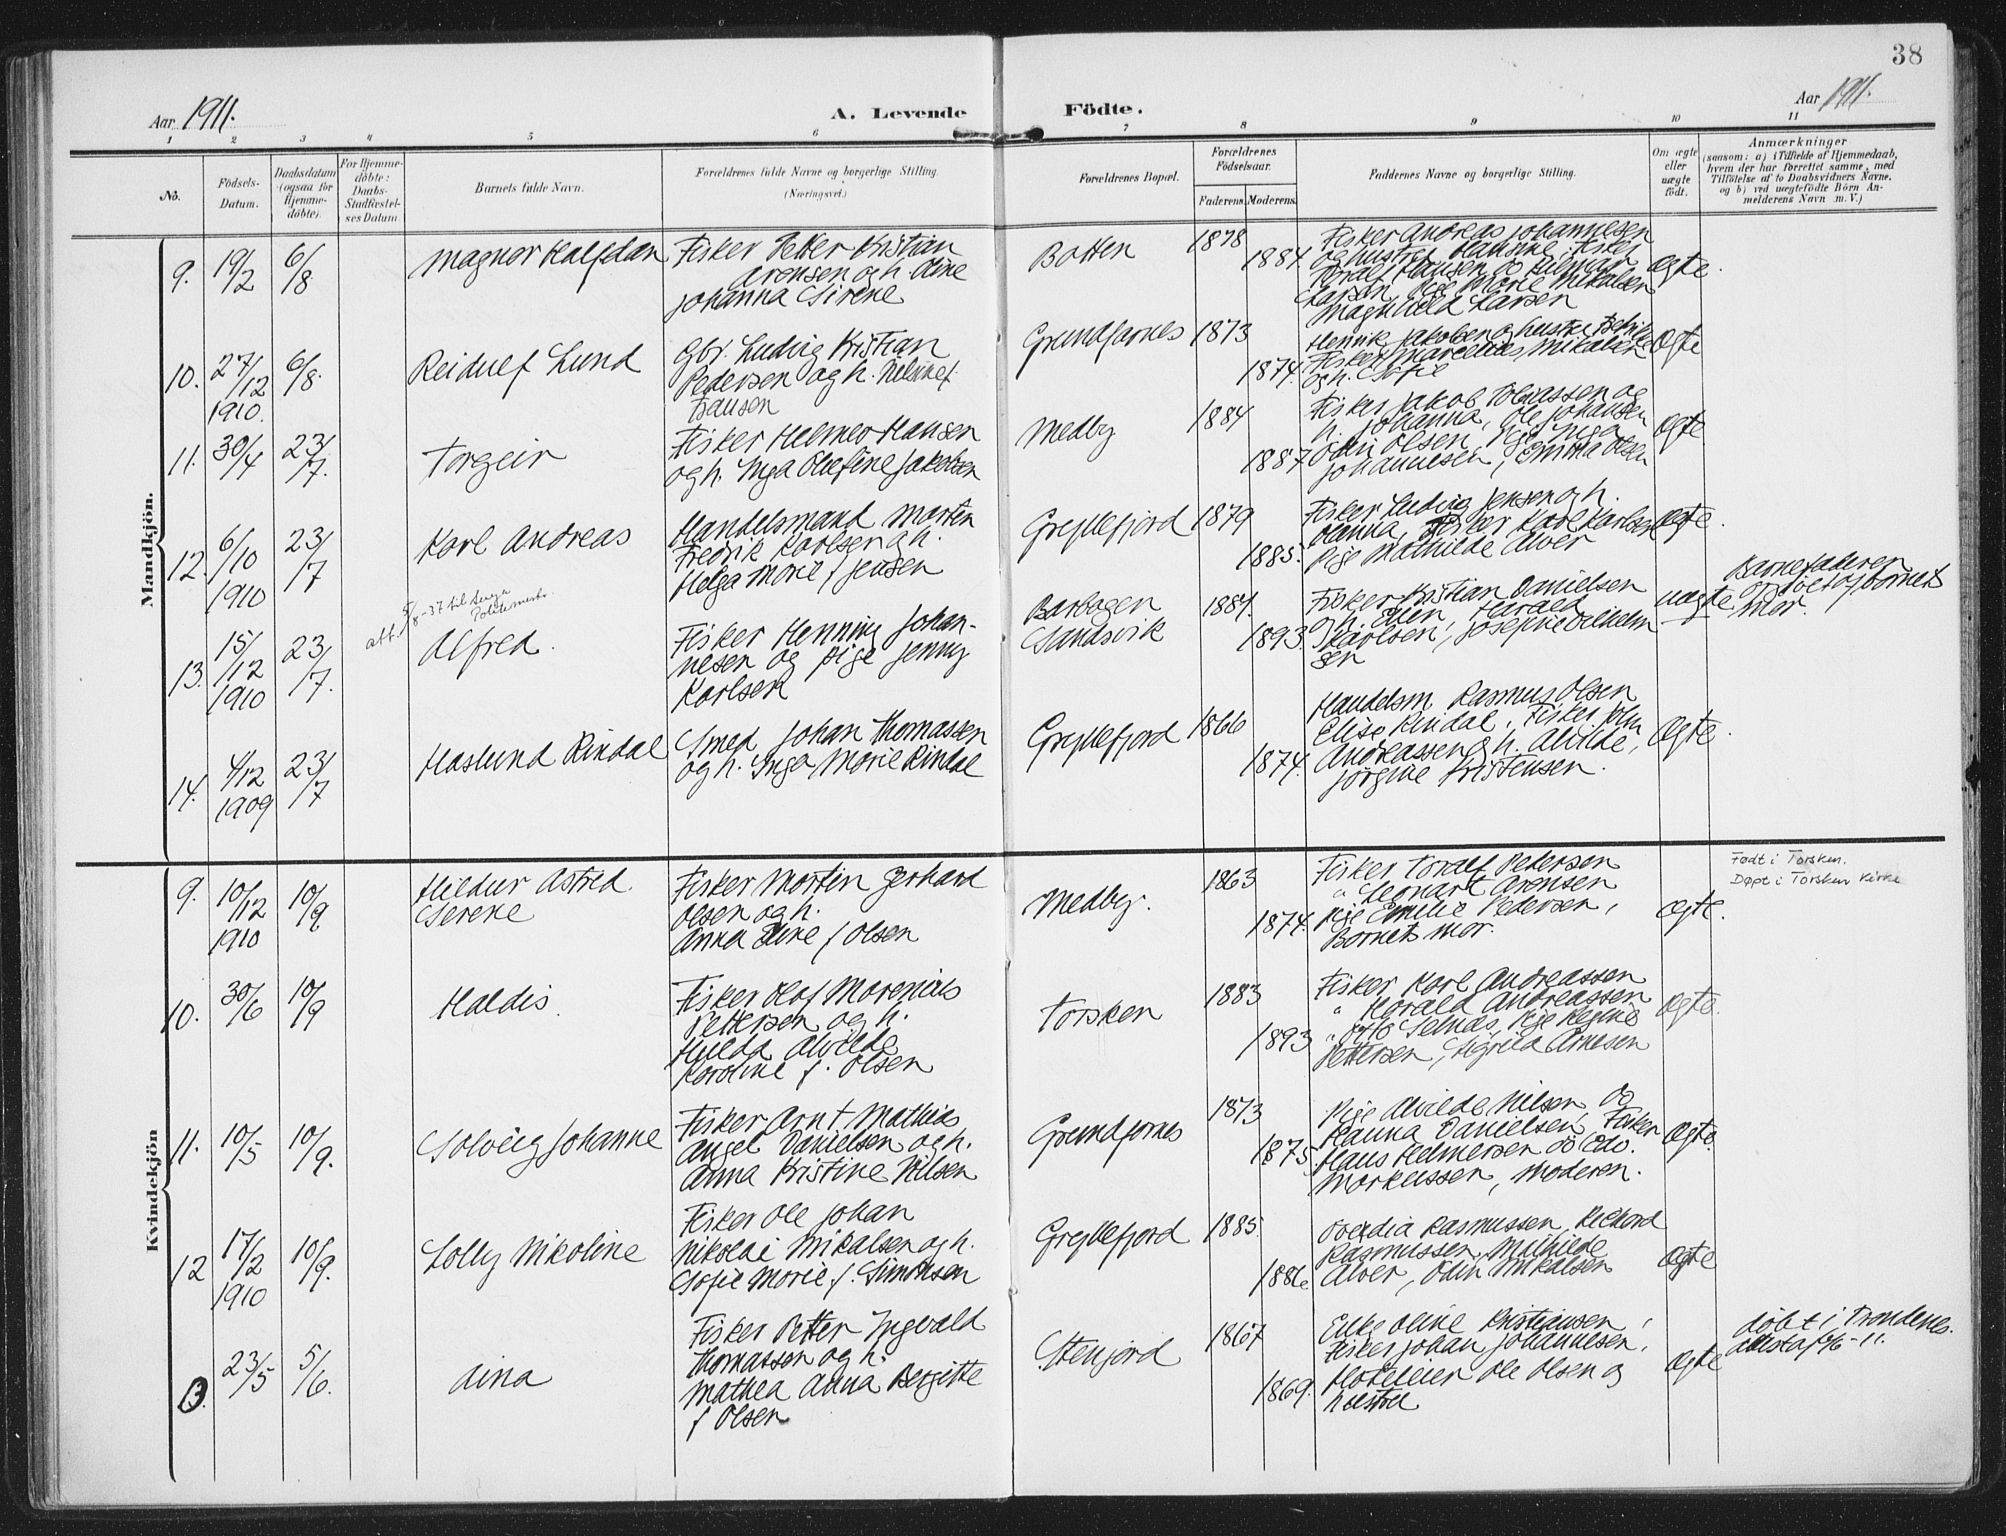 38
Aar 1911.
A. Levende
Födte.
Aar 1911.
1 2 3 4 5 6 7 8 9 10 11
No.
Födsels-
Datum.
Daabsdatum
(ogsaa for
Hjemme-
döbte).
For Hjemme-
döbte:
Daabs-
Stadfæstel-
ses Datum.
Barnets fulde Navn.
Forældrenes fulde Navne og borgerlige Stilling.
(Næringsvei.)
Forældrenes Bopæl.
Forældrenes
Födselsaar.
Faderens. Moderens.
Faddernes Navne og borgerlige Stilling.
Om ægte
eller
uægte
födt.
Anmærkninger
(saasom: a) i Tilfælde af Hjemmedaab,
hvem der har forrettet samme, med
Tilföielse af to Daabsvidners Navne,
og b) ved uægtefödte Börn An-
melderens Navn m. V.)
Mandkjön.
9. 19/2 6/8
Magnor Halfdan
Fisker Petter Kristian
Arensen og h. Oline
Johanna Sirene
Botten
1878
1884.
Fisker Andreas Johannesen
og hustru Hansine, Fisker
Toralf Hansen og Hilmar
Larsen, Pige Marie Mikalsen
Magnhild Larsen
Ægte.
10. 27/12 1910. 6/8.
Reidulf Lund
Gbr. Ludvig Kristian
Pedersen og h. Nilsine f.
Hansen
Grundfarnes
1873
1874.
Henrik Jakobsen og hustru Fredrikke
Fisker Marcelius Mikalsen
og h. Sofie
Ægte
11. 30/4 23/7.
Torgeir
Fisker Helmer Hansen
og h. Inga Olufine Jakobsen
Medby
1884
1887
Fisker Jakob Tobiassen og
h. Johanna, Ole Johansen
Odin Olsen, Pige Inga
Johannesen, Emma Olsen
Ægte
12. 6/10 1910 23/7
Karl Andreas
Handelsmand Morten
Fredrik Karlsen og h.
Helga Marie f. Jensen
Gryllefjord
1879
1885.
Fisker Ludvig Jensen og h.
Hanna, Fisker Karl Karlsen
Pige Mathilde Alver
Ægte.
13. 15/12 1910 23/7.
att. 5/8-37 til Senja
Politimestr.
Alfred.
Fisker Henning Johan-
nesen og pige Jenny
Karlsen
Barbogen
Sandsvik
1884.
1893.
Fisker Kristian Danielsen
og h. Elen, Harald
Karlsen, Josefine Vilhelm
sen
uægte.
Barnefaderen
opgivet af barnets
mor.
14. 4/12 1909 23/7
Haslund Rindal
Smed Johan Thomassen
og h. Inga Marie Rindal
Gryllefjord
1866
1874.
Handelsm. Rasmus Olsen
Elise Rindal, Fisker John
Andreassen og h. Alvilde,
Jørgine Kristensen.
Ægte.
Kvindekjön
9. 10/12 1910 10/9
Hildur Astrid
Serene
Fisker Morten Gerhard
Olsen og h.
Anna Oline f. Olsen
Medby.
1863
1874.
Fisker Toralf Pedersen
" Leonart Arensen
Pige Emilie Pedersen,
Barnets mor.
Ægte.
Født i Torsken.
Døpt i Torsken Kirke
10. 30/6 10/9
Haldis.
Fisker Olaf Morenius
Pettersen og h.
Hulda Alvilde
Karoline f. Olsen
Torsken
1883
1893
Fisker Karl Andreassen
" Harald Andreassen
" Otto Selnæs, Pige Regine
Pettersen, Sigrid Arnesen
Ægte.
11. 10/5 10/9.
Solveig Johanne
Fisker Arnt Mathias
Angel Danielsen og h.
Anna Kristine Nilsen
Grundfarnes
1873
1875.
Pige Alvilde Nilsen og
Hanna Danielsen, Fisker
Hans Helmersen og Edv.
Markussen, Moderen.
Ægte.
12 17/2 1910 10/9.
Lolly Nikoline
Fisker Ole Johan
Nikolai Mikalsen og h.
Sofie Marie f. Simonsen
Gryllefjord
1885.
1886
Ovedia Rasmussen, Rickard
Rasmussen, Mathilde
Alver, Odin Mikalsen
Ægte
13. 23/5 5/6.
Aina
Fisker Petter Ingvald
Thomassen og h.
Mathea Anna Bergitte
f. Olsen
Stenjord
1867
1869.
Enke Oline Kristiansen,
Fisker Johan Johannesen,
Hotelleier Ole Olsen og
hustru
Ægte
døbt i Trondenes.